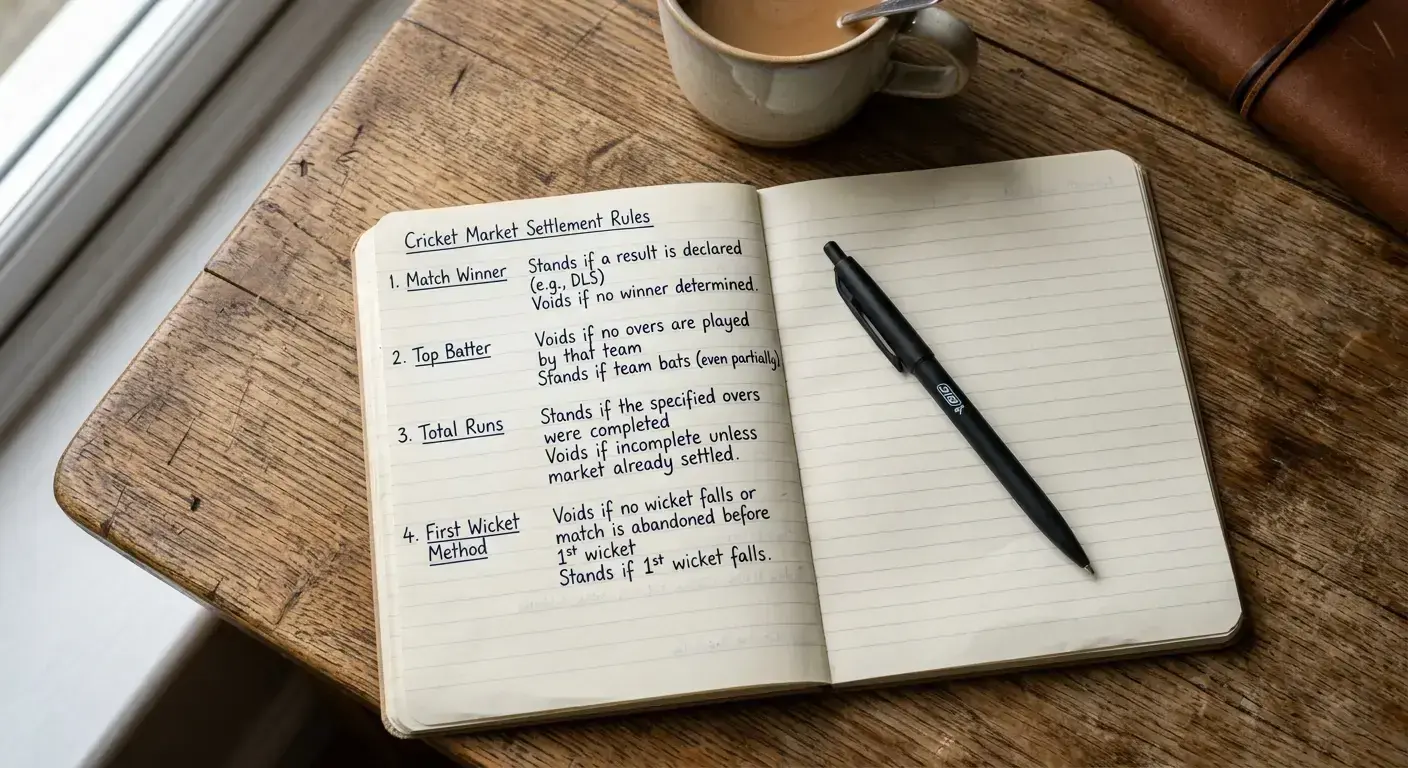 Cricket Market Settlement Rules
1. Match Winner
Stands if a result is declared
(e.g., DLS)
Voids if no winner determined.
2. Top Batter
Voids if no overs are played
by that team
Stands if team bats (even partially)
3. Total Runs
Stands if the specified overs
were completed
Voids if incomplete unless
market already settled.
4. First Wicket
Method
Voids if no wicket falls or
match is abandoned before
1st wicket
Stands if 1st wicket falls.